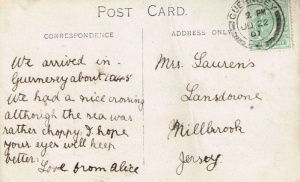 POST CARD.
CORRESPONDENCE
ADDRESS ONLY
GUERNSEY
JU 22
07
We arrived in
Guernesey about 10.45
We had a nice crossing
although the sea was
rather choppy I hope
your eyes will keep
better.
Love from Alice
Mrs. Laurens
Lansdowne
Millbrook
Jersey